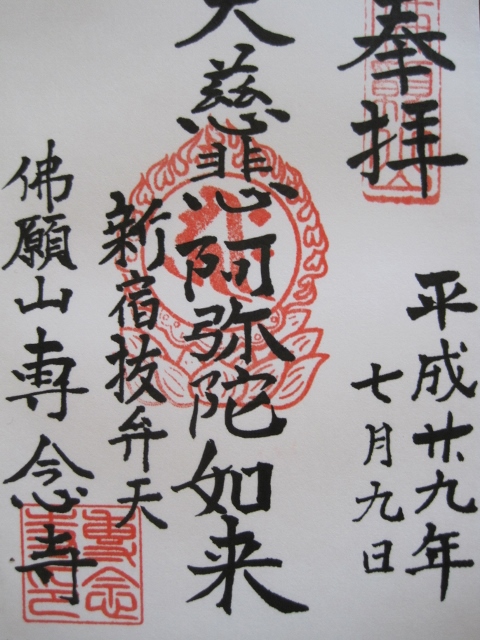 奉拝
平成廿九年
七月九日
大慈悲阿弥陀如来
新宿抜弁天
佛願山専念寺